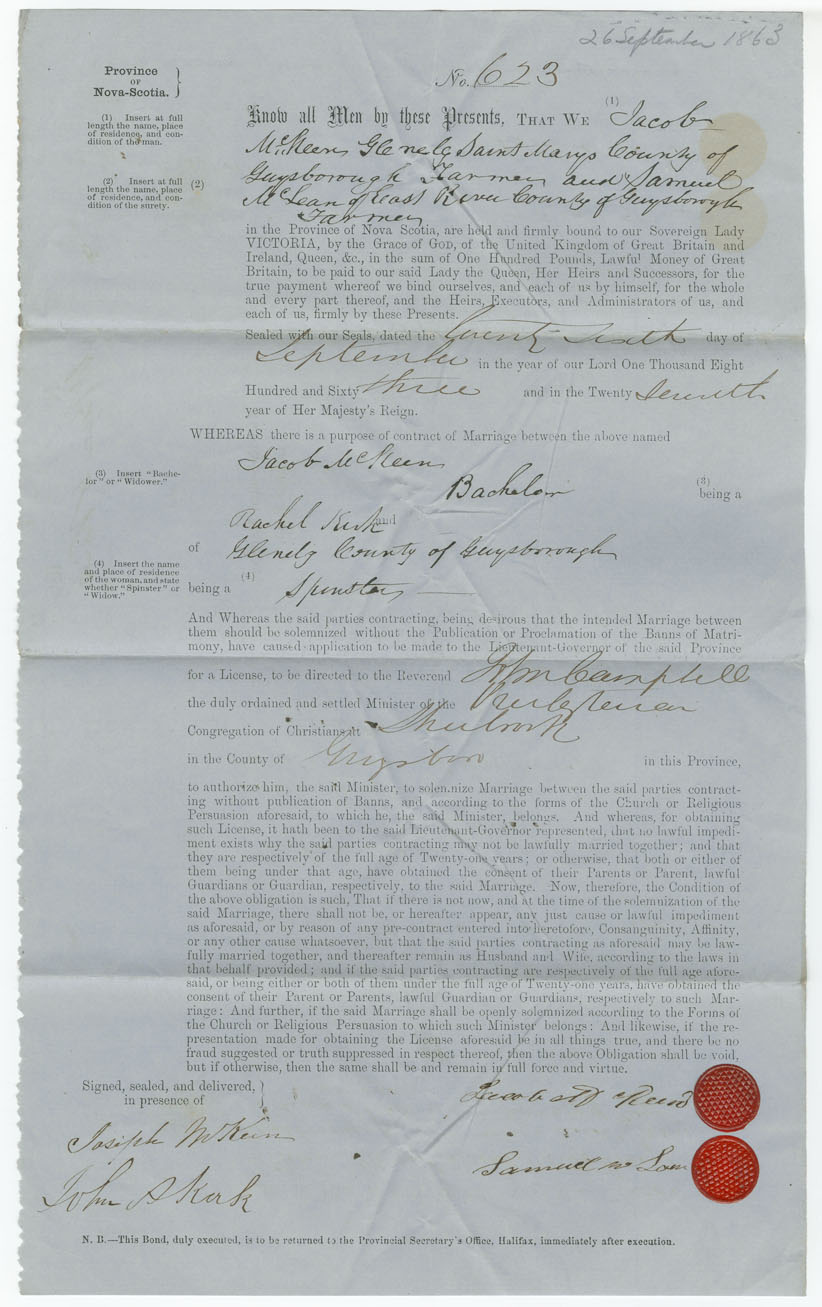 26 September 1863
No. 623
Province
OF
Nova-Scotia.
(1) Insert at full
length the name, place
of residence, and con-
dition of the man.
Know all Men by these Presents, THAT WE (1) Jacob
McKeen Glenelg Saint Marys County of
(2) Insert at full
length the name, place
of residence, and con-
dition of the surety.
(2) Guysborough Farmer and Samuel
McLean of East River County of Guysborough
Farmer
in the Province of Nova Scotia, are held and firmly bound to our Sovereign Lady
VICTORIA, by the Grace of GOD, of the United Kingdom of Great Britain and
Ireland, Queen, &c., in the sum of One Hundred Pounds, Lawful Money of Great
Britain, to be paid to our said Lady the Queen, Her Heirs and Successors, for the
true payment whereof we bind ourselves, and each of us by himself, for the whole
and every part thereof, and the Heirs, Executors, and Administrators of us, and
each of us, firmly by these Presents.
Sealed with our Seals, dated the Twenty Sixth day of
September in the year of our Lord One Thousand Eight
Hundred and Sixty three and in the Twenty Seventh
year of Her Majesty's Reign.
WHEREAS there is a purpose of contract of Marriage between the above named
Jacob McKeen
(3) Insert "Bache-
lor" or "Widower."
Bachelor (3) being a
Rachel Kirk and
of Glenelg County of Guysborough
(4) Insert the name
and place of residence
of the woman, and state
whether "Spinster" or
"Widow."
being a (4) Spinster
And Whereas the said parties contracting, being desirous that the intended Marriage between
them should be solemnized without the Publication or Proclamation of the Banns of Matri-
mony, have caused application to be made to the Lieutenant-Governor of the said Province
for a License, to be directed to the Reverend John Campbell
the duly ordained and settled Minister of the Presbyterian
Congregation of Christians at Sherbrook
in the County of Guysboro in this Province,
to authorize him, the said Minister, to solemnize Marriage between the said parties contract-
ing without publication of Banns, and according to the forms of the Church or Religious
Persuasion aforesaid, to which he, the said Minister, belongs. And whereas, for obtaining
such License, it hath been to the said Lieutenant-Governor represented, that no lawful impedi-
ment exists why the said parties contracting may not be lawfully married together; and that
they are respectively of the full age of Twenty-one years; or otherwise, that both or either of
them being under that age, have obtained the consent of their Parents or Parent, lawful
Guardians or Guardian, respectively, to the said Marriage. Now, therefore, the Condition of
the above obligation is such, That if there is not now, and at the time of the solemnization of the
said Marriage, there shall not be, or hereafter appear, any just cause or lawful impediment
as aforesaid, or by reason of any pre-contract entered into heretofore, Consanguinity, Affinity,
or any other cause whatsoever, but that the said parties contracting as aforesaid may be law-
fully married together, and thereafter remain as Husband and Wife, according to the laws in
that behalf provided; and if the said parties contracting are respectively of the full age afore-
said, or being either or both of them under the full age of Twenty-one years, have obtained the
consent of their Parent or Parents, lawful Guardian or Guardians, respectively to such Mar-
riage: And further, if the said Marriage shall be openly solemnized according to the Forms of
the Church or Religious Persuasion to which such Minister belongs: And likewise, if the re-
presentation made for obtaining the License aforesaid be in all things true, and there be no
fraud suggested or truth suppressed in respect thereof, then the above Obligation shall be void,
but if otherwise, then the same shall be and remain in full force and virtue.
Signed, sealed, and delivered,
in presence of
Jacob McKeen
Joseph McKeen
Samuel Mc Lean
John A Kirk
N. B.—This Bond, duly executed, is to be returned to the Provincial Secretary's Office, Halifax, immediately after execution.